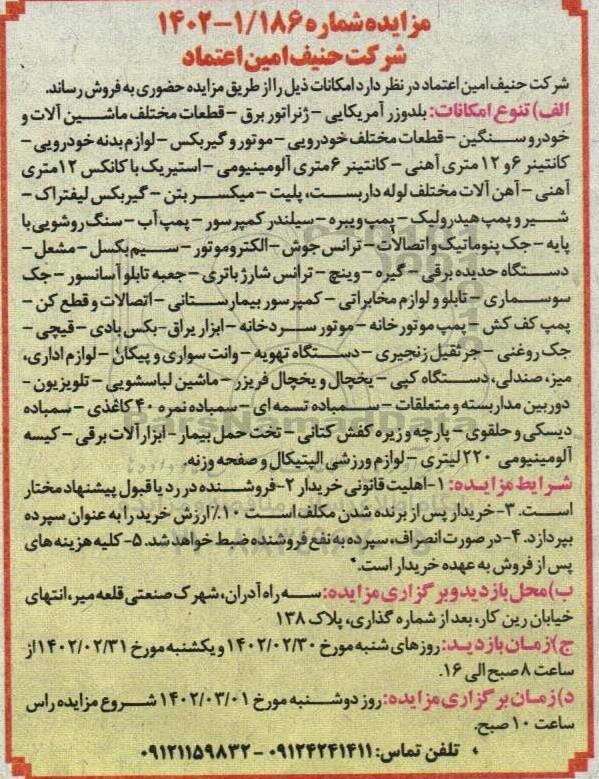 مزایده شماره ۱/۱۸۶-۱۴۰۲
شرکت حنیف امین اعتماد
شرکت حنیف امین اعتماد در نظر دارد امکانات ذیل را از طریق مزایده حضوری به فروش رساند.
الف) تنوع امکانات: بلدوزر آمریکایی - ژنراتور برق - قطعات مختلف ماشین آلات و
خودرو سنگین - قطعات مختلف خودرویی - موتور و گیربکس - لوازم بدنه خودرویی -
کانتینر ۶ و ۱۲ متری آهنی - کانتینر ۶ متری آلومینیومی - استیریک با کانکس ۱۲ متری
آهنی - آهن آلات مختلف لوله داربست، پلیت - میکسر بتن - گیربکس لیفتراک -
شیر و پمپ هیدرولیک - پمپ ویبره - سیلندر کمپرسور - پمپ آب - سنگ روشویی با
پایه - جک پنوماتیک و اتصالات - ترانس جوش - الکتروموتور - سیم بکسل - مشعل -
دستگاه حدیده برقی - گیره - وینچ - ترانس شارژ باتری - جعبه تابلو آسانسور - جک
سوسماری - تابلو و لوازم مخابراتی - کمپرسور بیمارستانی - اتصالات و قطع کن -
پمپ کف کش - پمپ موتور خانه - موتور سردخانه - ابزار یراق - بکس بادی - قیچی -
جک روغنی - جرثقیل زنجیری - دستگاه تهویه - وانت سواری و پیکان - لوازم اداری،
میز، صندلی، دستگاه کپی - یخچال و یخچال فریزر - ماشین لباسشویی - تلویزیون -
دوربین مداربسته و متعلقات - سمباده تسمه ای - سمباده نمره ۴۰ کاغذی - سمباده
دیسکی و حلقوی - پارچه و زیره کفش کتانی - تخت حمل بیمار - ابزار آلات برقی - کیسه
آلومینیومی ۲۲۰ لیتری - لوازم ورزشی الپتیکال و صفحه وزنه.
شرایط مزایده: ۱- اهلیت قانونی خریدار ۲- فروشنده در رد یا قبول پیشنهاد مختار
است. ۳- خریدار پس از برنده شدن مکلف است ۱۰٪ ارزش خرید را به عنوان سپرده
بپردازد. ۴- در صورت انصراف، سپرده به نفع فروشنده ضبط خواهد شد. ۵- کلیه هزینه های
پس از فروش به عهده خریدار است.
ب) محل بازدید و برگزاری مزایده: سه راه آدران، شهرک صنعتی قلعه میر، انتهای
خیابان رین کار، بعد از شماره گذاری، پلاک ۱۳۸
ج) زمان بازدید: روزهای شنبه مورخ ۱۴۰۲/۰۲/۳۰ و یکشنبه مورخ ۱۴۰۲/۰۲/۳۱ از
ساعت ۸ صبح الی ۱۶.
د) زمان برگزاری مزایده: روز دوشنبه مورخ ۱۴۰۲/۰۳/۰۱ شروع مزایده راس
ساعت ۱۰ صبح.
تلفن تماس: ۰۹۱۲۴۲۴۱۴۱۱ - ۰۹۱۲۱۱۵۹۸۳۲